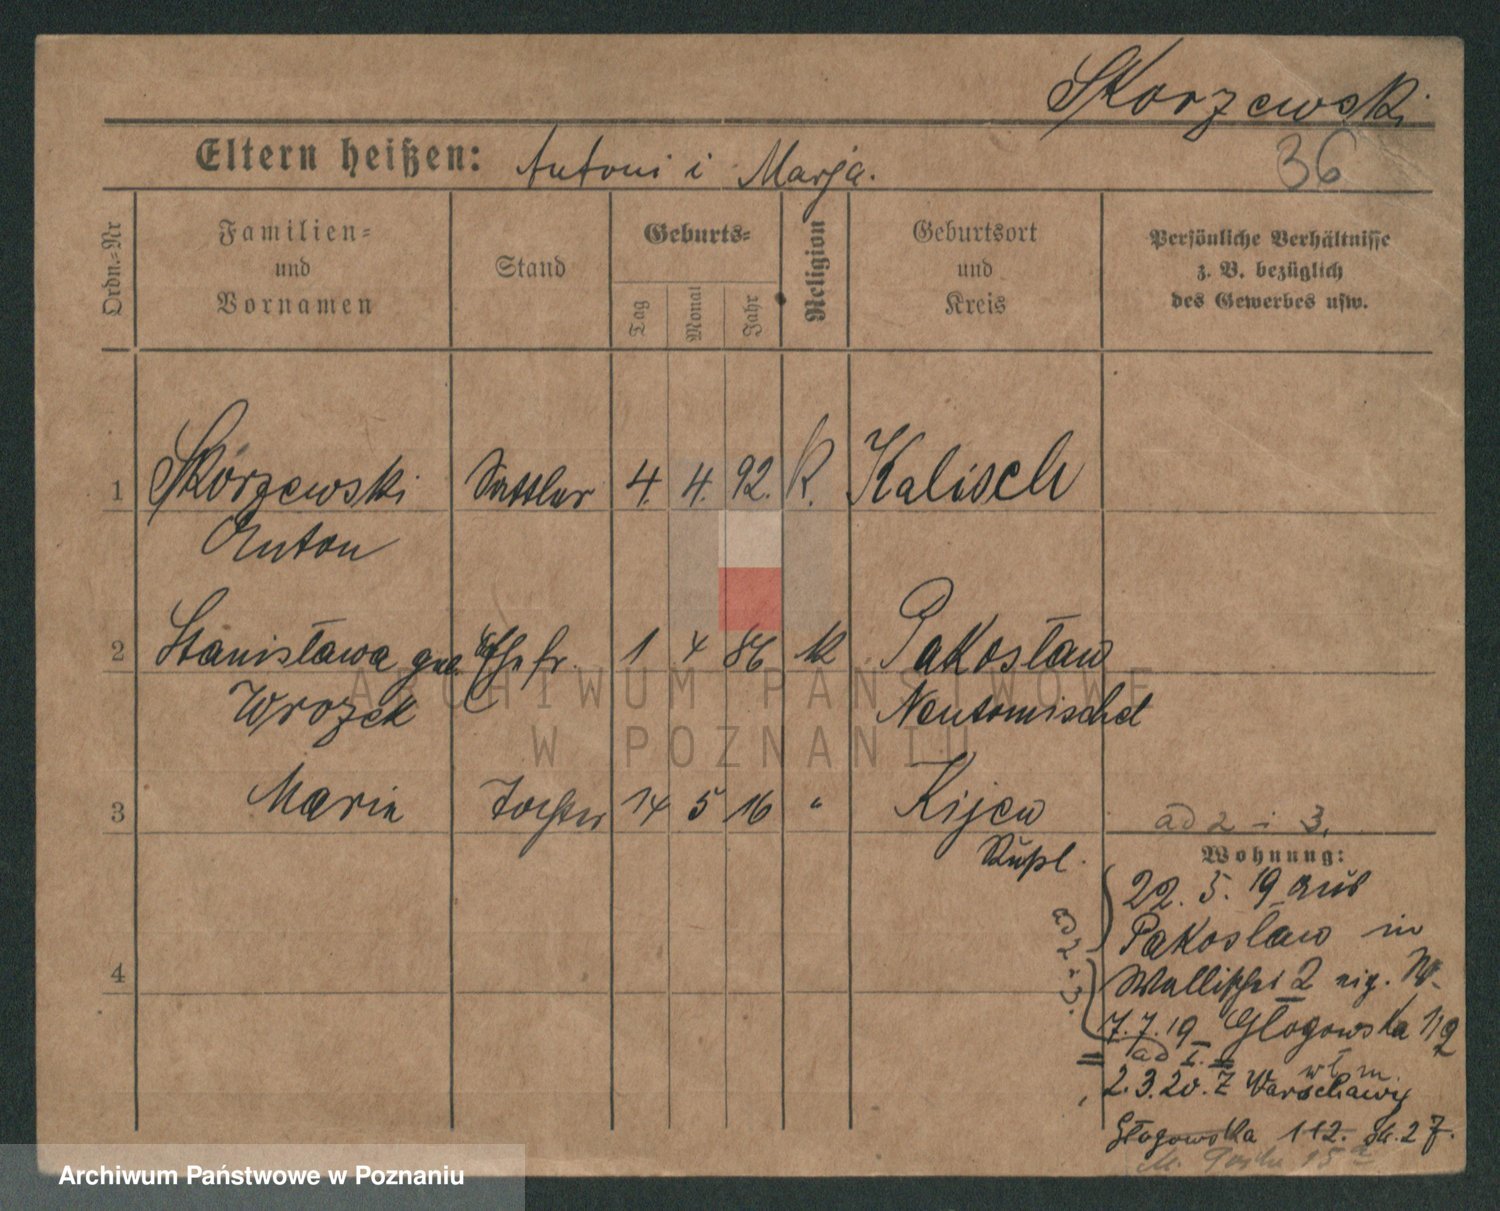 Skorzewski
Eltern heißen: Antoni i Marja.
36
Ordn.-Nr
Familien- und Vornamen
Stand
Geburts-
Tag Monat Jahr
Religion
Geburtsort und Kreis
Persönliche Verhältnisse
z. B. bezüglich
des Gewerbes usw.
1 Skórzewski Sattler 4. 4. 92. K. Kalisch
Anton
2 Stanisława geb. Ehefr. 1 4 86 K Pakosław
Wrozek Neutomischel
3 Marie Tochter 14 5 16 " Kijew
Rußl.
ad 2 i 3.
Wohnung:
22. 5. 19 aus
Pakoslaw in
Wallischei 2 eig. W.
ad 2 i 3.
7.7.19 Głogowska 112
ad I.
wł. m.
2.3.20. Z Warschawy
Głogowska 112. 27.
4
ARCHIWUM PAŃSTWOWE
W POZNANIU
Archiwum Państwowe w Poznaniu